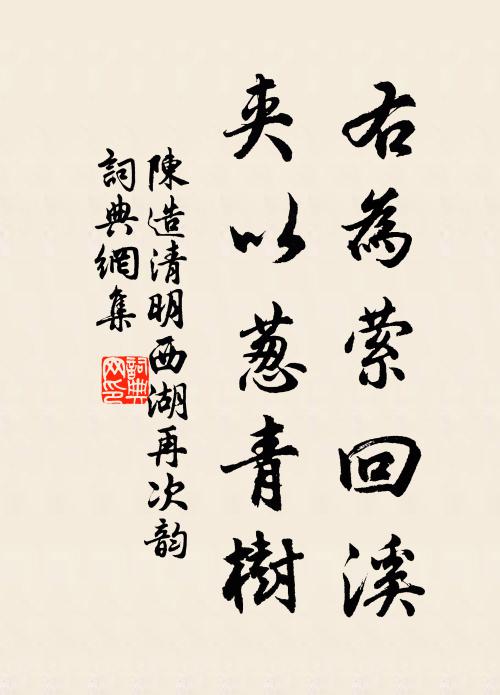 右為萦回溪
夹以葱青樹
陳造清明西湖再次韵
詞典網集
詞典網印